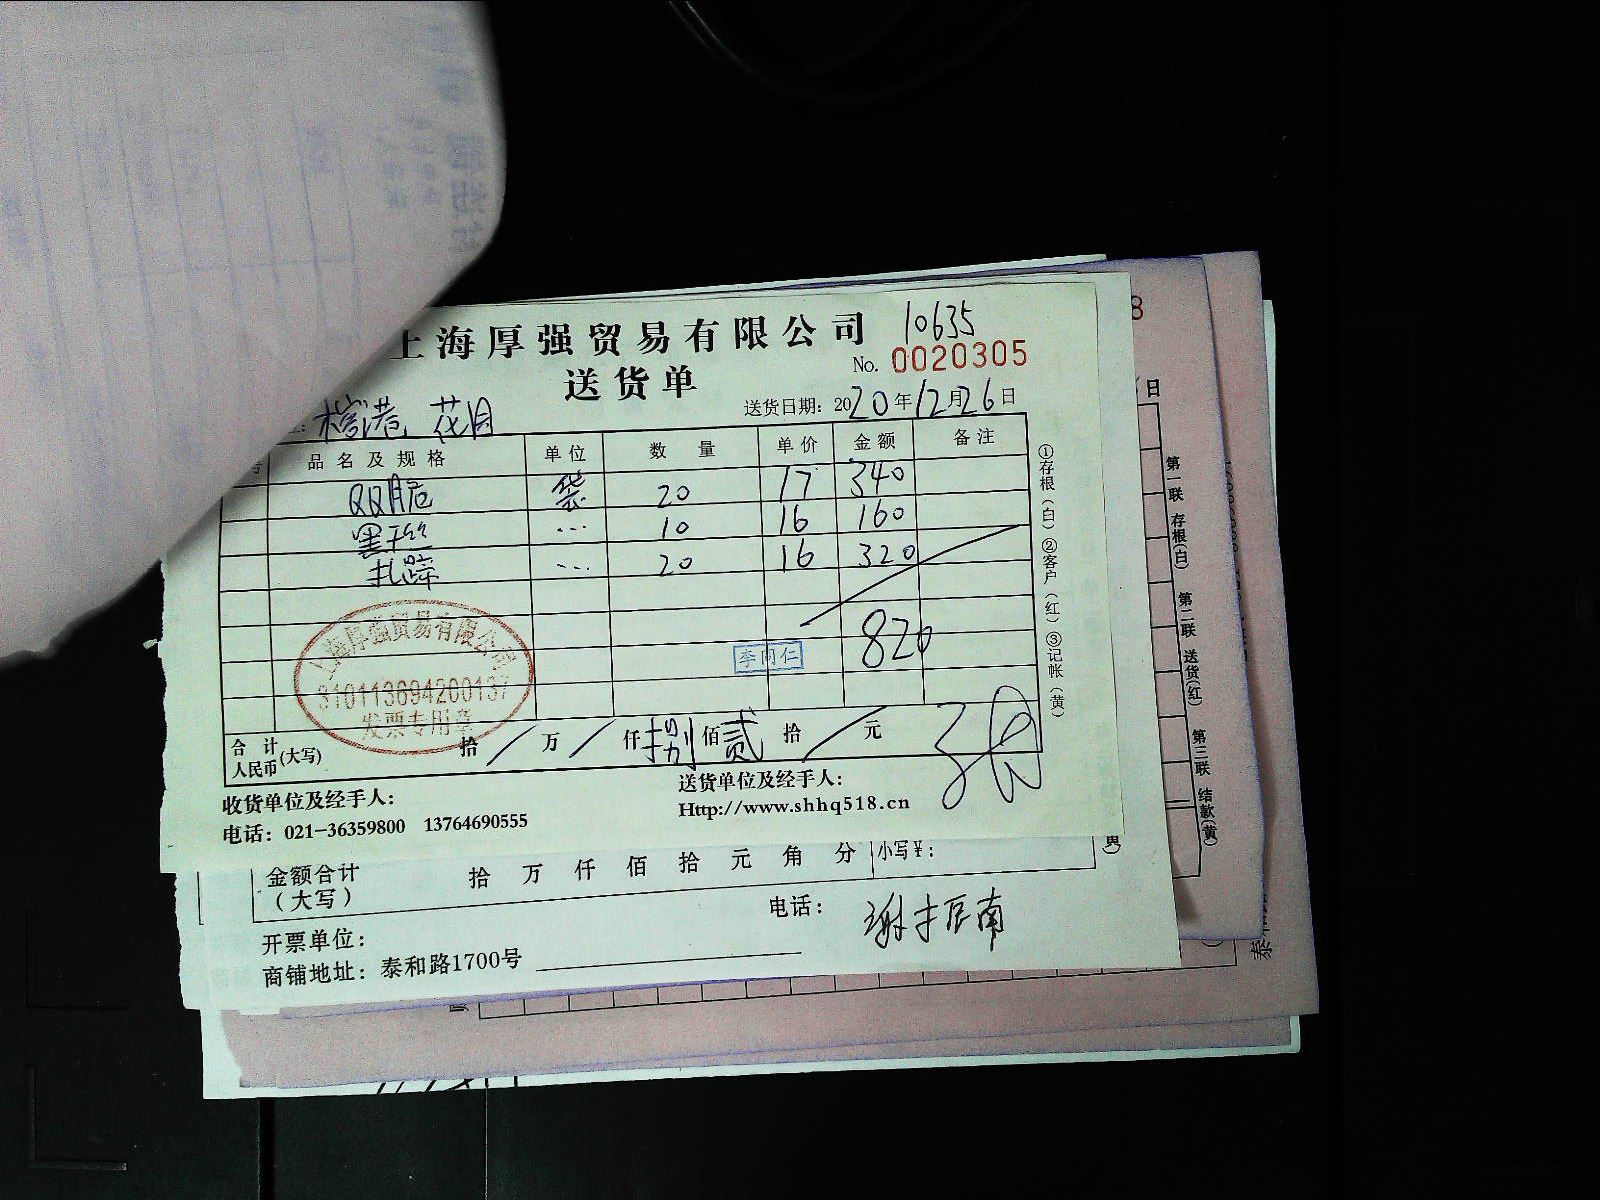 上海厚强贸易有限公司
10635
送货单
No. 0020305
花月
送货日期: 2020年12月26日
号 品名及规格 单位 数量 单价 金额 备注
QQ脆 袋 20 17 340
黑千丝 ... 10 16 160
扎蹄 ... 20 16 320
820
李同仁
上海厚强贸易有限公司
310113694200137
发票专用章
合计人民币(大写) 拾/万/仟捌佰贰拾/元
收货单位及经手人:
送货单位及经手人:
电话: 021-36359800 13764690555
Http://www.shhq518.cn
①存根(白)②客户(红)③记帐(黄)
金额合计(大写) 拾 万 仟 佰 拾 元 角 分 小写¥:
黄)
电话:
开票单位:
商铺地址: 泰和路1700号
8
日
第一联 存根(白) 第二联 送货(红) 第三联 结款(黄)
泰